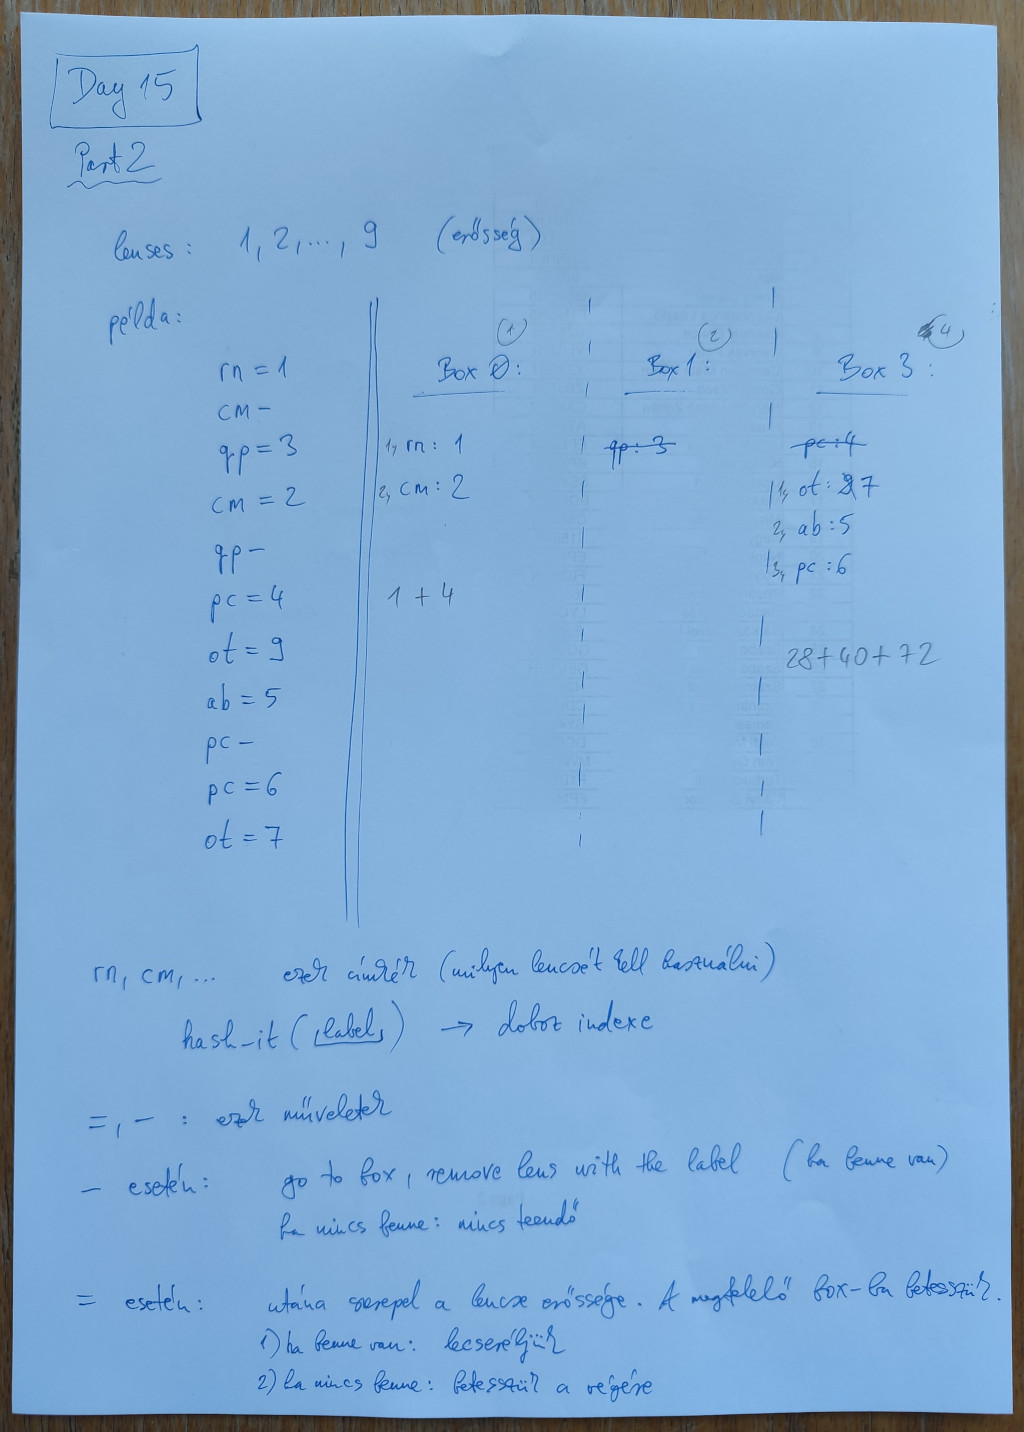 Day 15
Part 2
lenses: 1, 2, ..., 9 (erősség)
példa:
rn = 1
cm -
qp = 3
cm = 2
qp -
pc = 4
ot = 9
ab = 5
pc -
pc = 6
ot = 7
1
Box 0:
1, rn: 1
2, cm: 2
1 + 4
2
Box 1:
qp: 3
4
Box 3:
pc: 4
1, ot: 9 7
2, ab: 5
3, pc: 6
28+40+72
rn, cm, ... ezek címkék (milyen lencsét kell használni)
hash-it (label) → doboz indexe
=, - : ezek műveletek
- esetén: go to box, remove lens with the label (ha benne van)
ha nincs benne: nincs teendő
= esetén: utána szerepel a lencse erőssége. A megfelelő box-ba betesszük.
1) ha benne van: lecseréljük
2) ha nincs benne: betesszük a végére